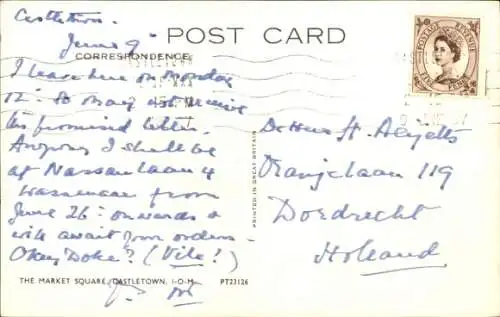 Castletown.
June 9
POST CARD
CORRESPONDENCE
I leave here on Monday
12 so may not receive
the promised letter.
Anyway I shall be
at Nassaulaan 4
Wassenaar from
June 26 onwards &
will await your orders.
Okey Doke? (Vile!)
De Heer H.
Oranjelaan 119
Dordrecht
Holland
POSTAGE REVENUE
PRINTED IN GREAT BRITAIN
THE MARKET SQUARE, CASTLETOWN, I-O-M. PT23126